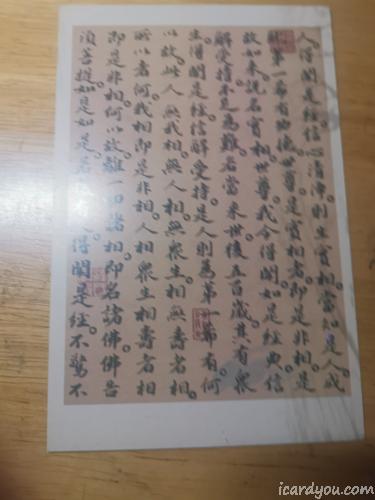 人得聞是經信心清淨則生實相當知是人成
第一希有功德世尊是實相者即是非相是
故如来說名實相世尊我今得聞如是經典信
解受持不足為難若當来世後五百歲其有衆
生得聞是經信解受持是人則為第一希有何
以故此人無我相無人相無衆生相無壽者相
所以者何我相即是非相人相衆生相壽者相
即是非相何以故離一切諸相即名諸佛佛告
須菩提如是如是若人得聞是經不驚不
icardyou.com